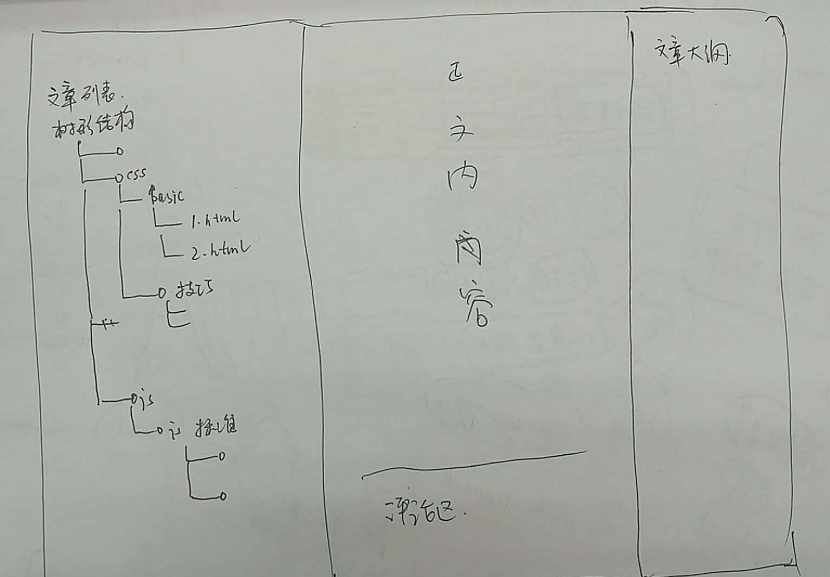 文章列表.
树形结构
css
basic
1.html
2.html
技巧
js
js 标准
正
文
内
容
评论区.
文章大纲.